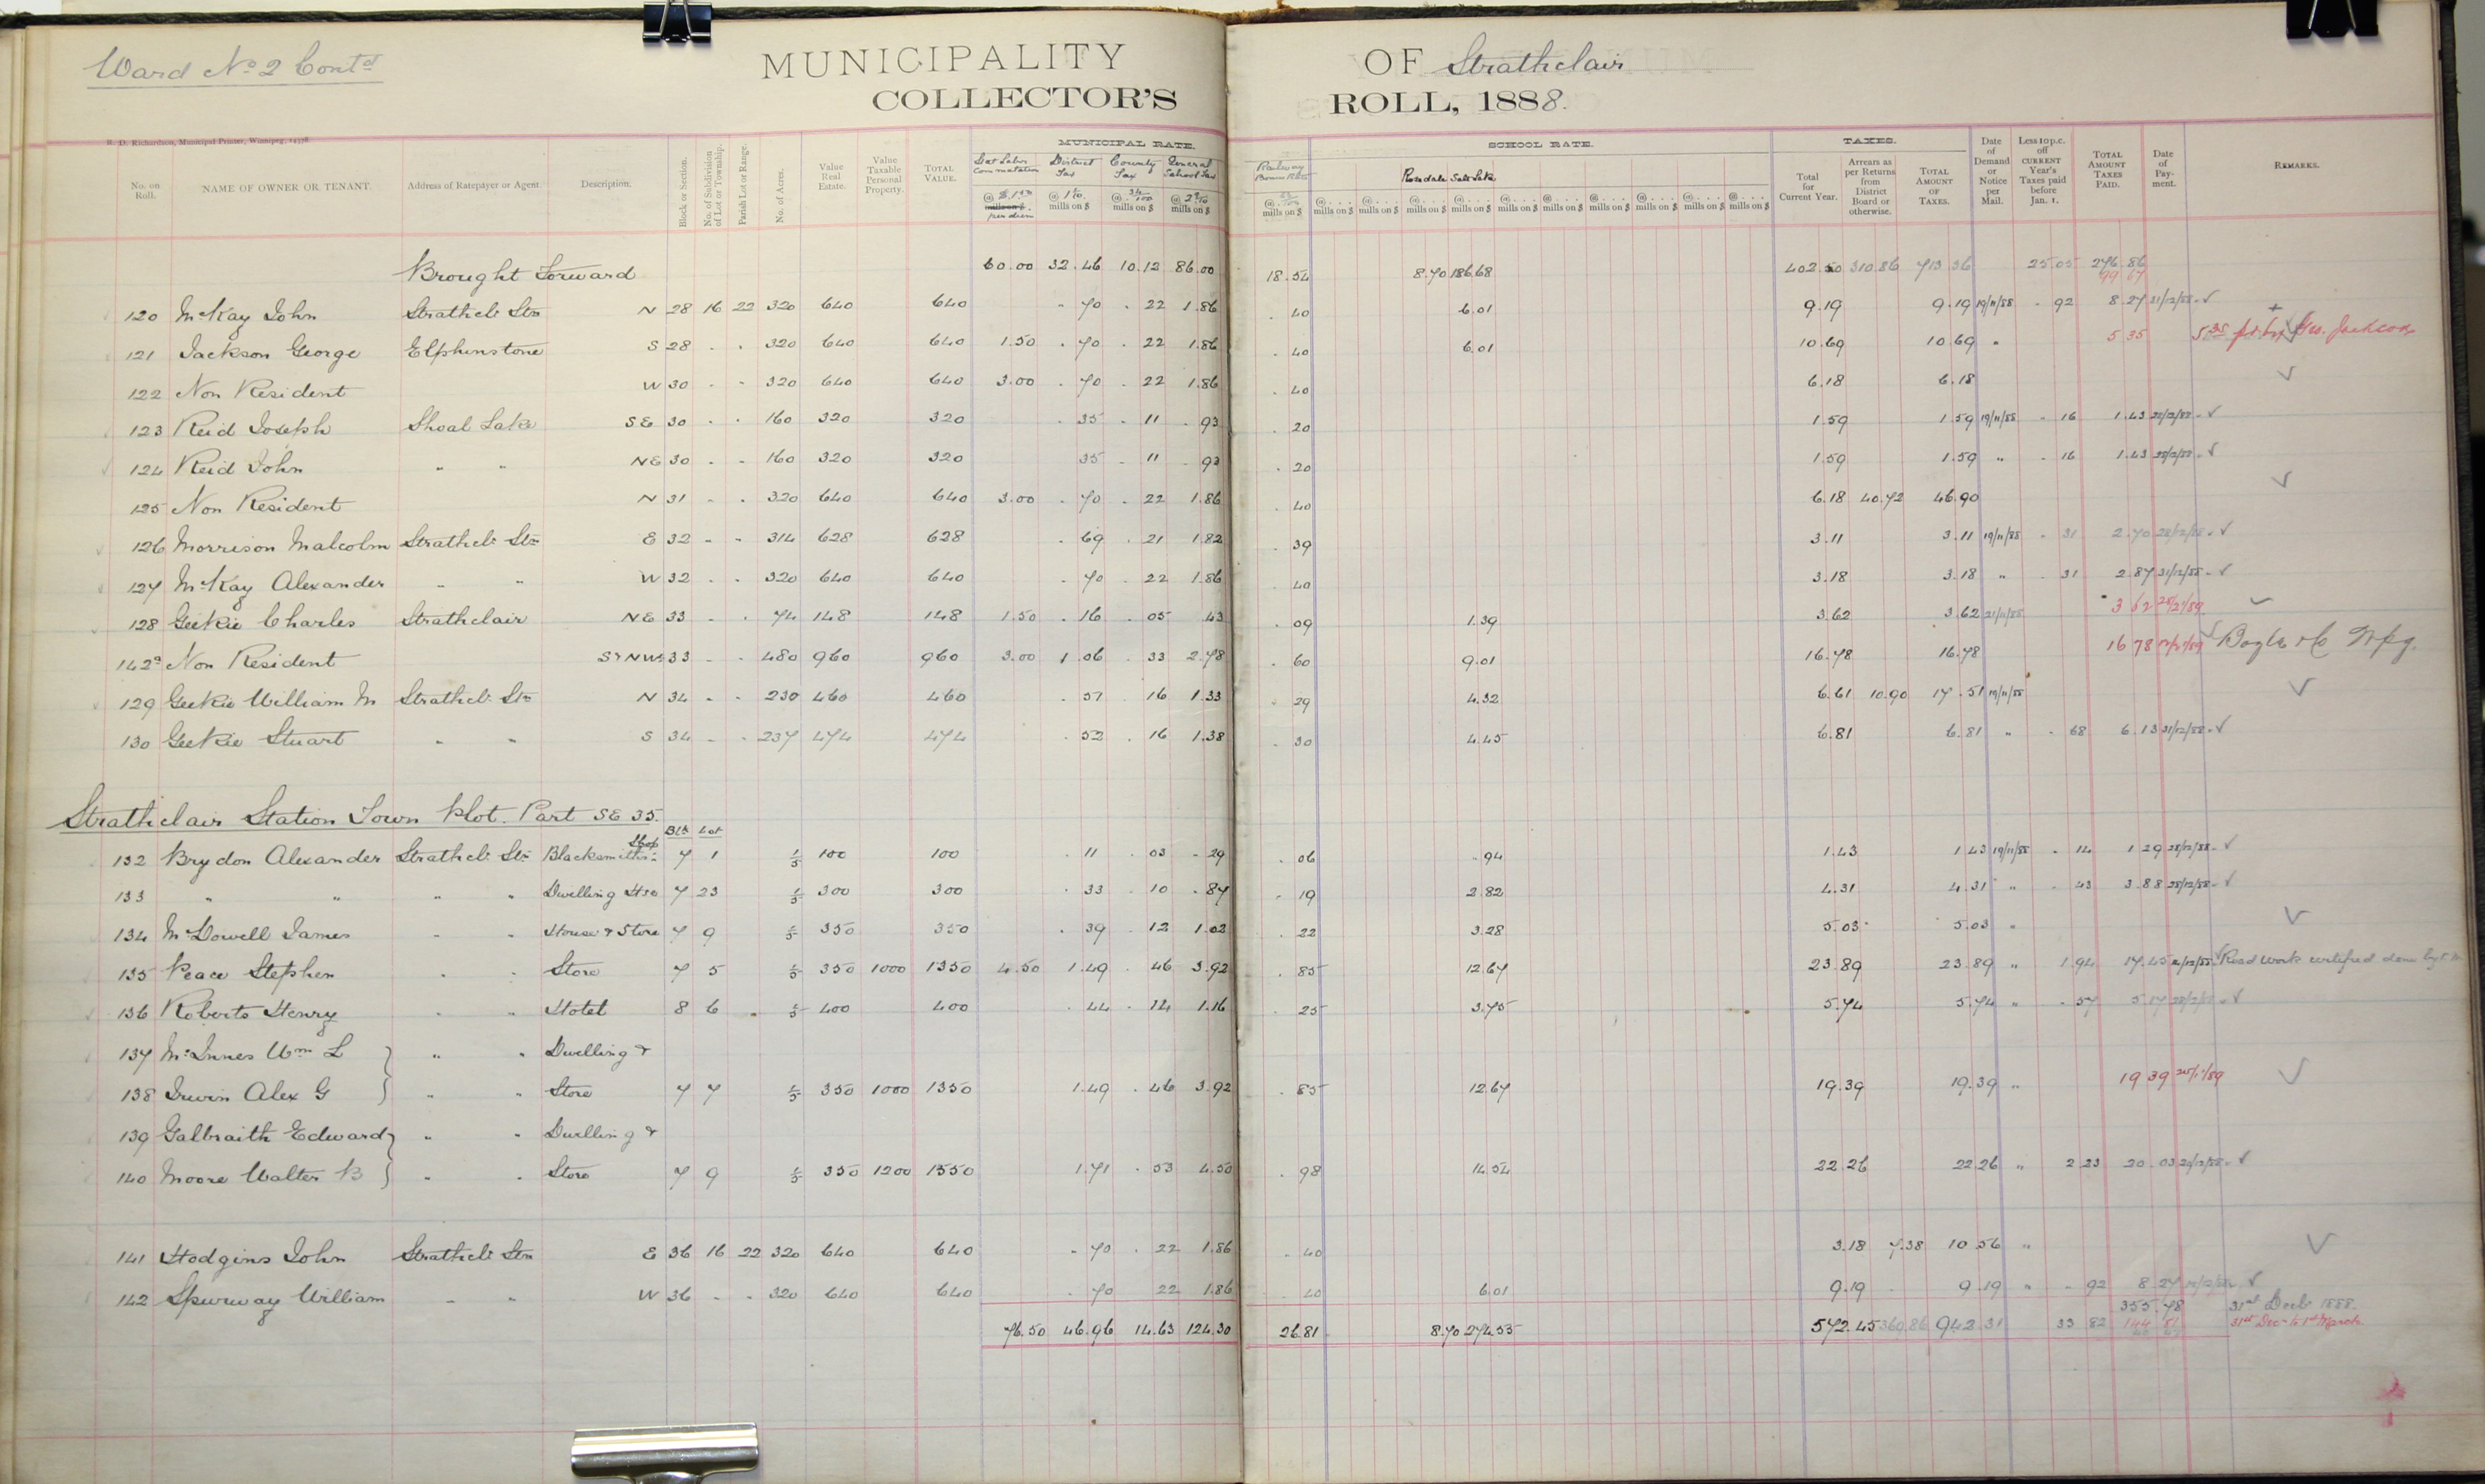 Ward No 2 Contd
MUNICIPALITY OF Strathclair
COLLECTOR'S ROLL, 1888.
R. D. Richardson, Municipal Printer, Winnipeg, 14378.
MUNICIPAL RATE. SCHOOL RATE. TAXES.
No. on Roll. NAME OF OWNER OR TENANT. Address of Ratepayer or Agent. Description. Block or Section. No. of Subdivision of Lot or Township. Parish Lot or Range. No. of Acres. Value Real Estate. Value Taxable Personal Property. TOTAL VALUE. Stat Labor Commutation @ $1.50 mills on $ per diem District Tax @ 1 1/10 mills on $ County Tax @ 34/100 mills on $ General School Tax @ 2 9/10 mills on $ Railway Bonus @ 63/100 mills on $ Rosedale Salt Lake @ mills on $ Total for Current Year. Arrears as per Returns from District Board or otherwise. TOTAL AMOUNT OF TAXES. Date of Demand or Notice per Mail. Less 10 p.c. off CURRENT Year's Taxes paid before Jan. 1. TOTAL AMOUNT TAXES PAID. Date of Payment. REMARKS.
Brought Forward 60.00 32.46 10.12 86.00 18.54 8.70 186.68 402.50 310.86 713.36 25.05 276.86
99 67
120 McKay John Strathcl. Stn N 28 16 22 320 640 640 . 70 . 22 1.86 . 40 6.01 9.19 9.19 19/11/88 . 92 8.27 31/12/88 ✓
121 Jackson George Elphinstone S 28 . . 320 640 640 1.50 . 70 . 22 1.86 . 40 6.01 10.69 10.69 " 5 35 5.35 pd by Geo. Jackson
122 Non Resident W 30 - - 320 640 640 3.00 . 70 . 22 1.86 . 40 6.18 6.18 ✓
123 Reid Joseph Shoal Lake SE 30 . . 160 320 320 . 35 . 11 . 93 . 20 1.59 1.59 19/11/88 . 16 1.43 28/12/88 ✓
124 Reid John " " NE 30 - - 160 320 320 35 . 11 . 93 . 20 1.59 1.59 " . 16 1.43 28/12/88 ✓
125 Non Resident N 31 - . 320 640 640 3.00 . 70 . 22 1.86 . 40 6.18 40.72 46.90 ✓
126 Morrison Malcolm Strathcl. Stn E 32 - - 314 628 628 . 69 . 21 1.82 . 39 3.11 3.11 19/11/88 . 31 2.70 28/12/88 ✓
127 McKay Alexander " " W 32 . . 320 640 640 . 70 . 22 1.86 . 40 3.18 3.18 " . 31 2.87 31/12/88 ✓
128 Geekie Charles Strathclair NE 33 - . 74 148 148 1.50 . 16 . 05 . 43 . 09 1.39 3.62 3.62 21/11/88 3 62 ✓
142a Non Resident S & NW 33 - - 480 960 960 3.00 1 06 . 33 2.78 . 60 9.01 16.78 16.78 16 78 ✓
129 Geekie William M Strathcl. Stn N 34 - - 230 460 460 . 51 . 16 1.33 . 29 4.32 6.61 10.90 17.51 19/11/88 ✓
130 Geekie Stuart " " S 34 - . 237 474 474 . 52 . 16 1.38 . 30 4.45 6.81 6.81 " . 68 6.13 31/12/88 ✓
Strathclair Station Town Plot. Part SE 35.
Blk Lot
132 Brydon Alexander Strathcl. Stn Blacksmiths Shop 7 1 1/5 100 100 . 11 . 03 . 29 . 06 . 94 1.43 1.43 19/11/88 . 14 1 29 28/12/88 ✓
133 " " " " Dwelling Hse 7 23 1/5 300 300 . 33 . 10 . 87 . 19 2.82 4.31 4.31 " . 43 3.88 28/12/88 ✓
134 McDowell James " " House & Store 7 9 1/5 350 350 . 39 . 12 1.02 . 22 3.28 5.03 5.03 " ✓
135 Peace Stephen " " Store 7 5 1/5 350 1000 1350 4.50 1.49 . 46 3.92 . 85 12.67 23.89 23.89 " 1.94 17.45 ✓ Road work certified done by
136 Roberts Henry " " Hotel 8 6 1/5 400 400 . 44 . 14 1.16 . 25 3.75 5.74 5.74 " . 57 5.17 ✓
137 McInnes Wm L " " Dwelling &
138 Irwin Alex G " " Store 7 7 1/5 350 1000 1350 1.49 . 46 3.92 . 85 12.67 19.39 19.39 " 19 39 ✓
139 Galbraith Edward " " Dwelling &
140 Moore Walter B " " Store 7 9 1/5 350 1200 1550 1.71 . 53 4.50 . 98 14.54 22.26 22.26 " 2 23 20.03 ✓
141 Hodgins John Strathcl. Stn E 36 16 22 320 640 640 . 70 . 22 1.86 . 40 3.18 7.38 10 56 " ✓
142 Spurway William " " W 36 - - 320 640 640 . 70 22 1.86 . 40 6.01 9.19 9.19 " . 92 8.27 ✓
355.78 31st Decb 1888.
76.50 46.96 14.63 124.30 26.81 8.70 274.55 572.45 369.86 942.31 33 82 144 81 31st Dec to 1st March